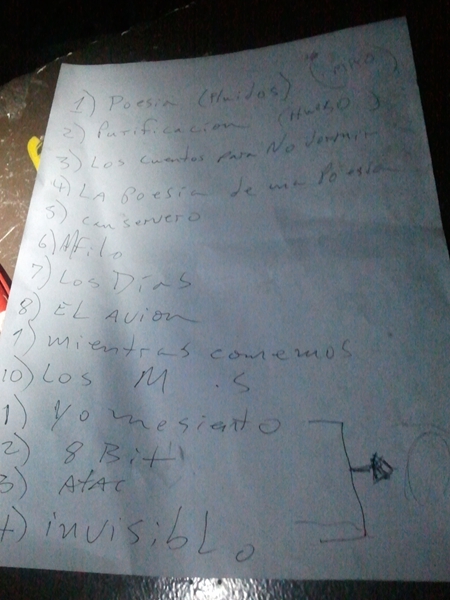 1) Poesia (Fluidos)
2) Purificacion
3) Los cuentos para No dormir
4) LA Poesia de una Poesia
5) canservero
6) Afilo
7) Los Días
8) EL AVION
9) mientras comemos
10) Los M . S
1) Yo me siento
2) 8 Bit
3) Atac
4) invisibL